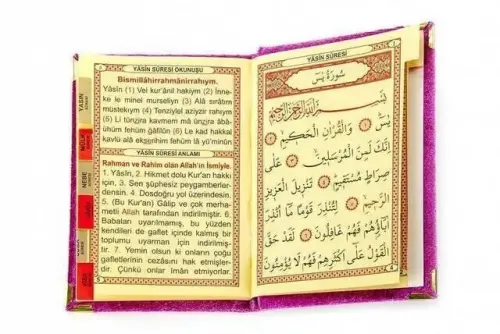 YÂSÎN SÛRESİ OKUNUŞU
Bismillâhirrahmânirrahıym.
Yâsîn (1) Vel kur'ânil hakiym (2) İnne-
ke le minel murseliyn (3) Alâ sırâtım
müstekıym (4) Tenziylel aziyzir rahıym
(5) Li tünzira kavmem mâ ünzira âbâ-
ühüm fehüm ğâfilûn (6) Le kad hakkal
kavlü alâ ekserihim fehüm lâ yü'minûn
YÂSÎN SÛRESİ ANLAMI
Rahman ve Rahim olan Allah'ın İsmiyle.
1. Yâsîn, 2. Hikmet dolu Kur'an hakkı
için, 3. Sen şüphesiz peygamberler-
densin. 4. Dosdoğru yol üzerindesin.
5. (Bu Kur'an) Gâlip ve çok merha-
metli Allah tarafından indirilmiştir. 6.
Babaları uyarılmamış, bu yüzden
kendileri de gaflet içinde kalmış bir
toplumu uyarman için indirilmiş-
tir. 7. Yemin olsun ki onların çoğu
gafletlerinin cezasını hak etmişler-
dir. Çünkü onlar îman etmiyorlar.
YASİN
NEBE
YÂSÎN SÛRESİ
سُورَةُ يٰسٓ
بِسْمِ اللّٰهِ الرَّحْمٰنِ الرَّحِيمِ
يٰسٓ ﴿١﴾ وَالْقُرْاٰنِ الْحَكِيمِ ﴿٢﴾
اِنَّكَ لَمِنَ الْمُرْسَلِينَ ﴿٣﴾ عَلٰى
صِرَاطٍ مُسْتَقِيمٍ ﴿٤﴾ تَنْزِيلَ الْعَزِيزِ
الرَّحِيمِ ﴿٥﴾ لِتُنْذِرَ قَوْمًا مَٓا اُنْذِرَ
اٰبَٓاؤُهُمْ فَهُمْ غَافِلُونَ ﴿٦﴾ لَقَدْ حَقَّ
الْقَوْلُ عَلٰٓى اَكْثَرِهِمْ فَهُمْ لَا يُؤْمِنُونَ